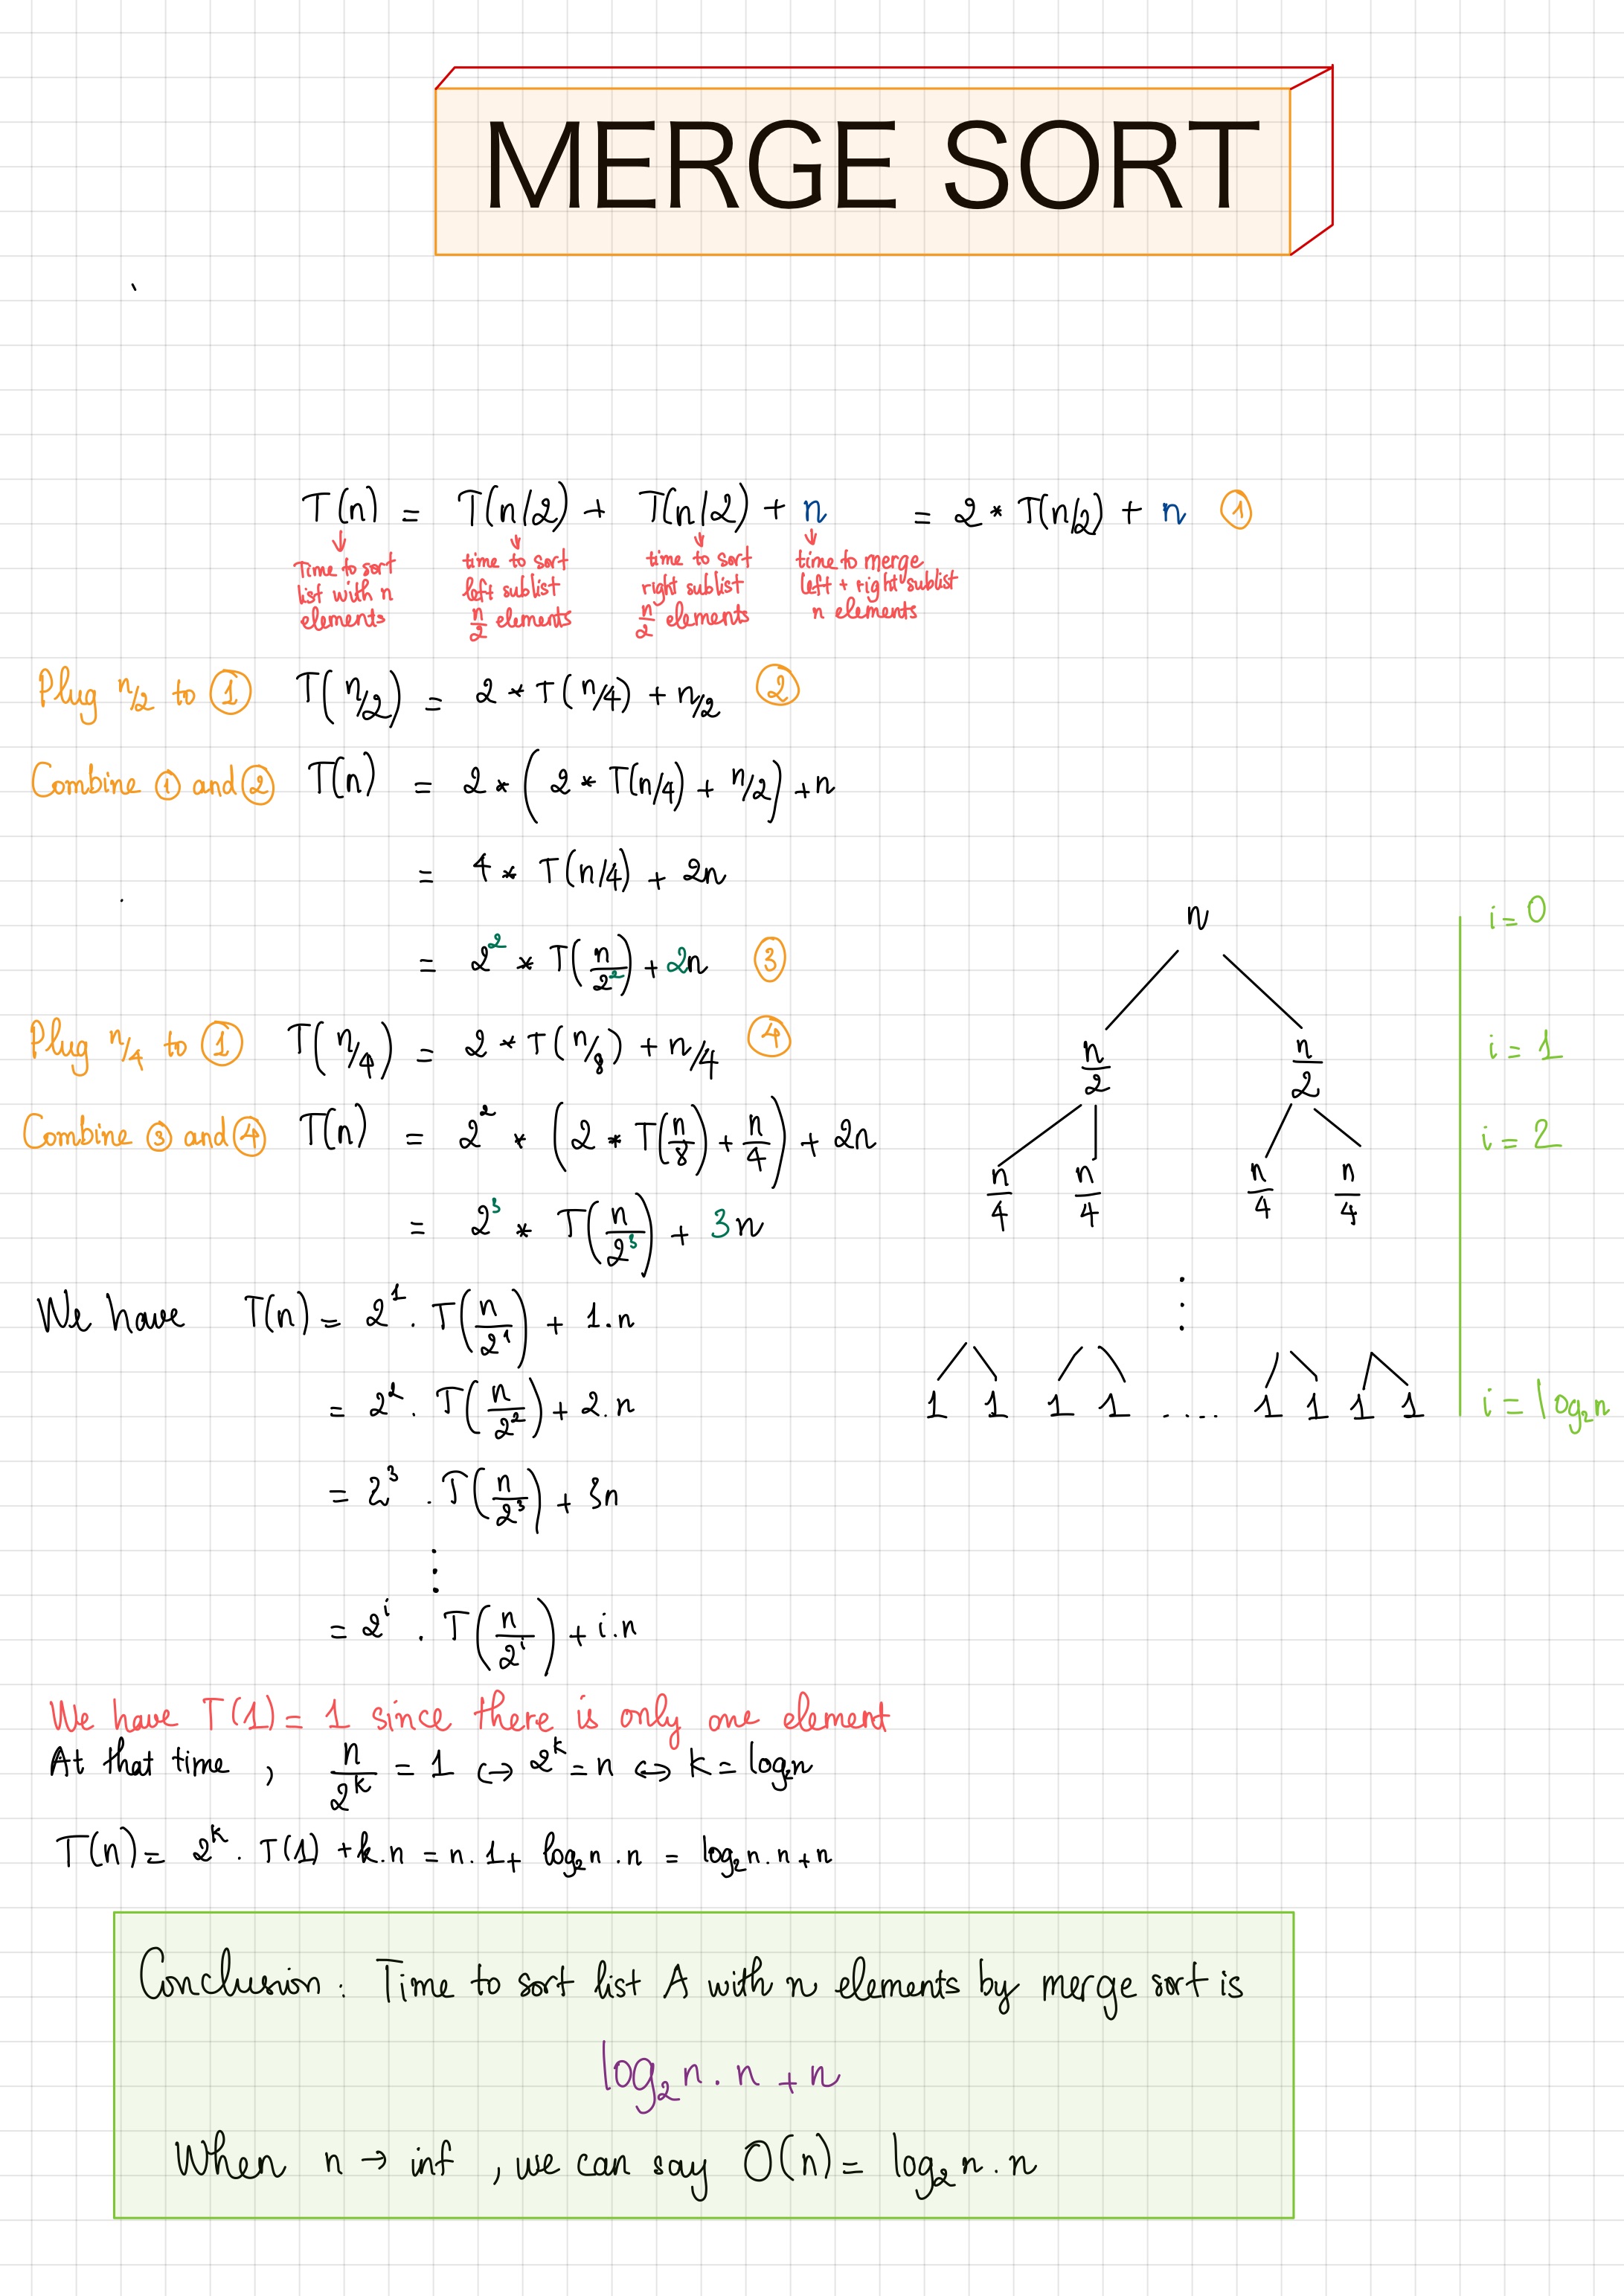 MERGE SORT
T(n) = T(n/2) + T(n/2) + n = 2 * T(n/2) + n ①
↓ ↓ ↓ ↓
Time to sort list with n elements
time to sort left sublist n/2 elements
time to sort right sublist n/2 elements
time to merge left + right sublist n elements
Plug n/2 to ① T(n/2) = 2 * T(n/4) + n/2 ②
Combine ① and ② T(n) = 2 * (2 * T(n/4) + n/2) + n
= 4 * T(n/4) + 2n
= 2² * T(n/2²) + 2n ③
Plug n/4 to ① T(n/4) = 2 * T(n/8) + n/4 ④
Combine ③ and ④ T(n) = 2² * (2 * T(n/8) + n/4) + 2n
= 2³ * T(n/2³) + 3n
We have T(n) = 2¹ . T(n/2¹) + 1.n
= 2² . T(n/2²) + 2.n
= 2³ . T(n/2³) + 3n
⋮
= 2ⁱ . T(n/2ⁱ) + i.n
n i = 0
n/2 n/2 i = 1
i = 2
n/4 n/4 n/4 n/4
⋮
1 1 1 1 .... 1 1 1 1 i = log₂n
We have T(1) = 1 since there is only one element
At that time , n/2ᵏ = 1 ↔ 2ᵏ = n ↔ k = log₂n
T(n) = 2ᵏ . T(1) + k.n = n.1 + log₂n . n = log₂n . n + n
Conclusion : Time to sort list A with n elements by merge sort is
log₂n . n + n
When n → inf , we can say O(n) = log₂n . n